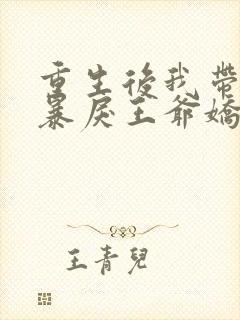 重生後我帶
暴戾王爺嬌
王青兒